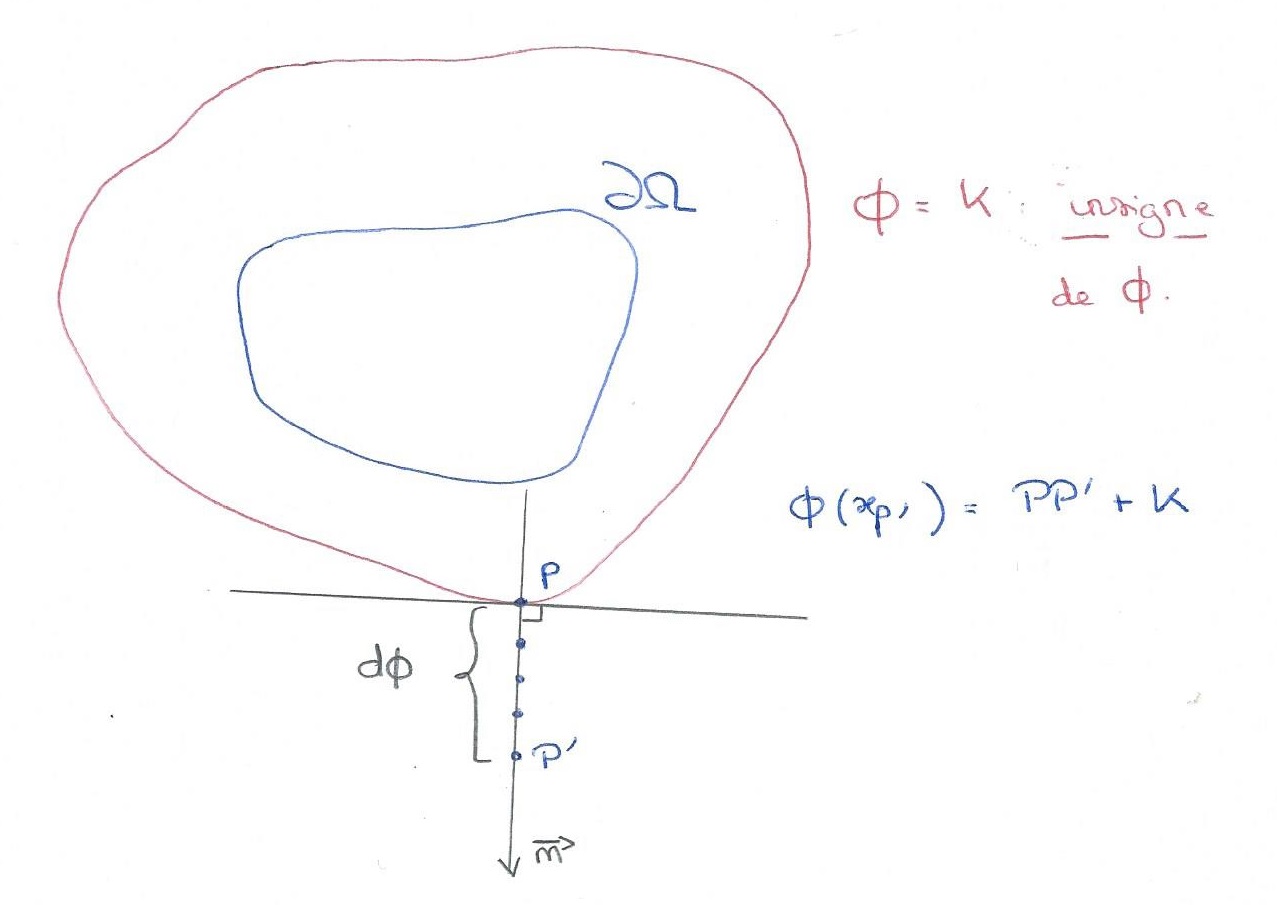 ∂Ω
ϕ = K : insigne
de ϕ.
ϕ(xp') = PP' + K
P
dϕ
P'
n⃗